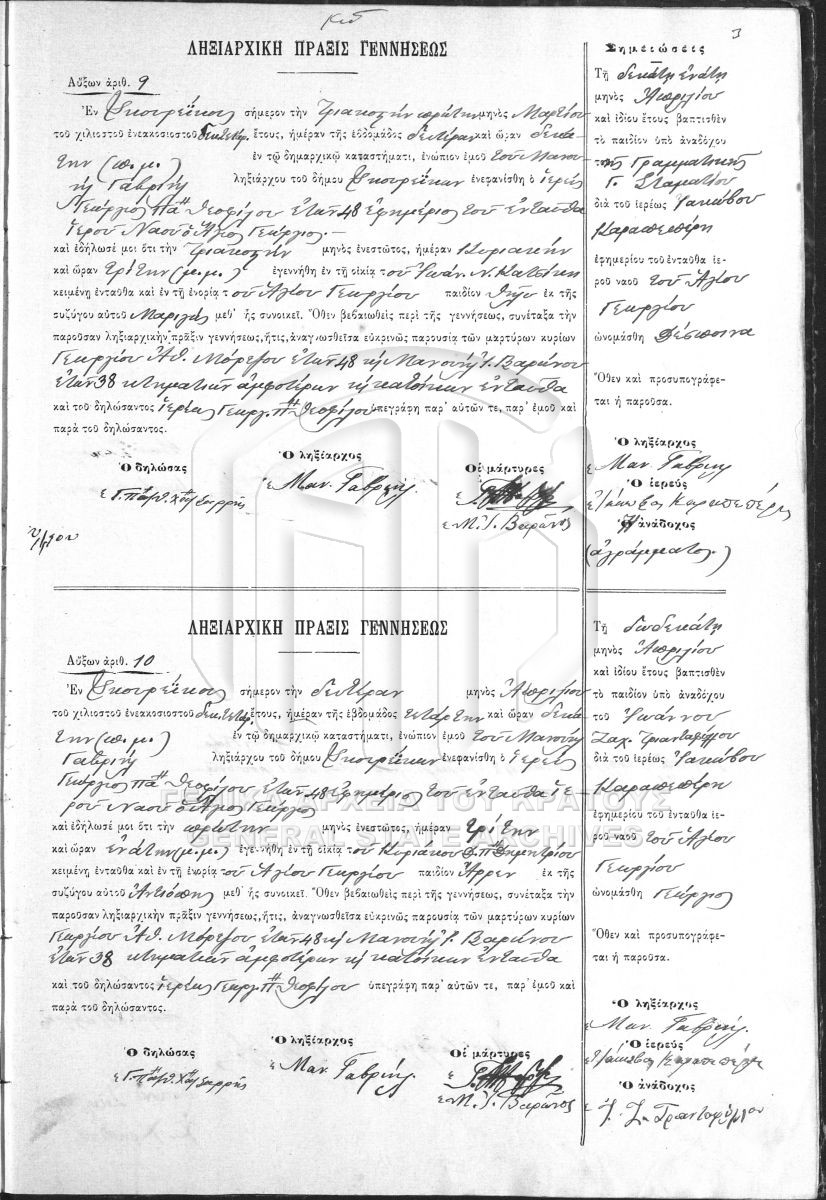 3
ΛΗΞΙΑΡΧΙΚΗ ΠΡΑΞΙΣ ΓΕΝΝΗΣΕΩΣ
Αὔξων ἀριθ. 9
Ἐν σήμερον τὴν Τριακοστὴν πρώτην μηνὸς Μαρτίου
τοῦ χιλιοστοῦ ἐνεακοσιοστοῦ ἔτους, ἡμέραν τῆς ἑβδομάδος Δευτέραν καὶ ὥραν δεκά-
την (π.μ.) ἐν τῷ δημαρχικῷ καταστήματι, ἐνώπιον ἐμοῦ τοῦ Μανου-
ὴλ Γαβριὴλ ληξιάρχου τοῦ δήμου ἐνεφανίσθη ὁ ἱερεὺς
Γεώργιος Πα Θεοφίλου ἐτῶν 48 ἐφημέριος τοῦ ἐνταῦθα
ἱεροῦ Ναοῦ ὁ Ἅγιος Γεώργιος.-
καὶ ἐδήλωσέ μοι ὅτι τὴν Τριακοστὴν μηνὸς ἐνεστῶτος, ἡμέραν Κυριακὴν
καὶ ὥραν τρίτην (μ.μ.) ἐγεννήθη ἐν τῇ οἰκίᾳ τοῦ Ἰωάν. Ν.
κειμένῃ ἐνταῦθα καὶ ἐν τῇ ἐνορίᾳ τοῦ Ἁγίου Γεωργίου παιδίον θῆλυ ἐκ τῆς
συζύγου αὐτοῦ μεθ' ἧς συνοικεῖ. Ὅθεν βεβαιωθεὶς περὶ τῆς γεννήσεως, συνέταξα τὴν
παροῦσαν ληξιαρχικὴν πρᾶξιν γεννήσεως, ἥτις, ἀναγνωσθεῖσα εὐκρινῶς παρουσίᾳ τῶν μαρτύρων κυρίων
Γεωργίου Ἀθ. ἐτῶν 48 κὴ Μανουὴλ Ἰ. Βαρώνου
ἐτῶν 38 κτηματιῶν ἀμφοτέρων κὴ κατοίκων ἐνταῦθα
καὶ τοῦ δηλώσαντος ἱερέως Γεωργ. Πα Θεοφίλου ὑπεγράφη παρ' αὐτῶν τε, παρ' ἐμοῦ καὶ
παρὰ τοῦ δηλώσαντος.
Ὁ δηλώσας
Ὁ ληξίαρχος
Οἱ μάρτυρες
Μαν. Γαβριήλ
Μ. Ἰ. Βαρῶνος
Σημειώσεις
Τῇ δεκάτῃ ἐνάτῃ
μηνὸς Ἀπριλίου
καὶ ἰδίου ἔτους βαπτισθὲν
τὸ παιδίον ὑπὸ ἀναδόχου
Γ. Σταματίου
διὰ τοῦ ἱερέως Ἰακώβου
Καραπιπέρη
ἐφημερίου τοῦ ἐνταῦθα ἱε-
ροῦ ναοῦ τοῦ Ἁγίου
Γεωργίου
ὠνομάσθη Δέσποινα
Ὅθεν καὶ προσυπογράφε-
ται ἡ παροῦσα.
Ὁ ληξίαρχος
Μαν. Γαβριήλ
Ὁ ἱερεὺς
Ἰάκωβος Καραπιπέρης
Ἡ ἀνάδοχος
(ἀγράμματος)
ΛΗΞΙΑΡΧΙΚΗ ΠΡΑΞΙΣ ΓΕΝΝΗΣΕΩΣ
Αὔξων ἀριθ. 10
Ἐν σήμερον τὴν δευτέραν μηνὸς Ἀπριλίου
τοῦ χιλιοστοῦ ἐνεακοσιοστοῦ ἔτους, ἡμέραν τῆς ἑβδομάδος τετάρτην καὶ ὥραν δεκά-
την (π.μ.) ἐν τῷ δημαρχικῷ καταστήματι, ἐνώπιον ἐμοῦ τοῦ Μανουὴλ
Γαβριὴλ ληξιάρχου τοῦ δήμου ἐνεφανίσθη ὁ ἱερεὺς
Γεώργιος Πα Θεοφίλου ἐτῶν 48 ἐφημέριος τοῦ ἐνταῦθα ἱε-
ροῦ Ναοῦ ὁ Ἅγιος Γεώργιος
καὶ ἐδήλωσέ μοι ὅτι τὴν πρώτην μηνὸς ἐνεστῶτος, ἡμέραν τρίτην
καὶ ὥραν ἐνάτην (μ.μ.) ἐγεννήθη ἐν τῇ οἰκίᾳ τοῦ Κυριάκου Δημητρίου
κειμένῃ ἐνταῦθα καὶ ἐν τῇ ἐνορίᾳ τοῦ Ἁγίου Γεωργίου παιδίον ἄρρεν ἐκ τῆς
συζύγου αὐτοῦ Ἀντιόπης μεθ' ἧς συνοικεῖ. Ὅθεν βεβαιωθεὶς περὶ τῆς γεννήσεως, συνέταξα τὴν
παροῦσαν ληξιαρχικὴν πρᾶξιν γεννήσεως, ἥτις, ἀναγνωσθεῖσα εὐκρινῶς παρουσίᾳ τῶν μαρτύρων κυρίων
Γεωργίου Ἀθ. ἐτῶν 48 κὴ Μανουὴλ Ἰ. Βαρώνου
ἐτῶν 38 κτηματιῶν ἀμφοτέρων κὴ κατοίκων ἐνταῦθα
καὶ τοῦ δηλώσαντος ἱερέως Γεωργ. Πα Θεοφίλου ὑπεγράφη παρ' αὐτῶν τε, παρ' ἐμοῦ καὶ
παρὰ τοῦ δηλώσαντος.
Ὁ δηλώσας
Ὁ ληξίαρχος
Οἱ μάρτυρες
Μαν. Γαβριήλ
Μ. Ἰ. Βαρῶνος
Τῇ δωδεκάτῃ
μηνὸς Ἀπριλίου
καὶ ἰδίου ἔτους βαπτισθὲν
τὸ παιδίον ὑπὸ ἀναδόχου
τοῦ Ἰωάννου
Ζαχ. Τριανταφύλλου
διὰ τοῦ ἱερέως Ἰακώβου
Καραπιπέρη
ἐφημερίου τοῦ ἐνταῦθα ἱε-
ροῦ ναοῦ τοῦ Ἁγίου
Γεωργίου
ὠνομάσθη Γεώργιος
Ὅθεν καὶ προσυπογράφε-
ται ἡ παροῦσα.
Ὁ ληξίαρχος
Μαν. Γαβριήλ
Ὁ ἱερεὺς
Ἰάκωβος Καραπιπέρης
Ὁ ἀνάδοχος
Ἰ. Ζ. Τριανταφύλλου
ΓΕΝΙΚΑ ΑΡΧΕΙΑ ΤΟΥ ΚΡΑΤΟΥΣ
GENERAL STATE ARCHIVES